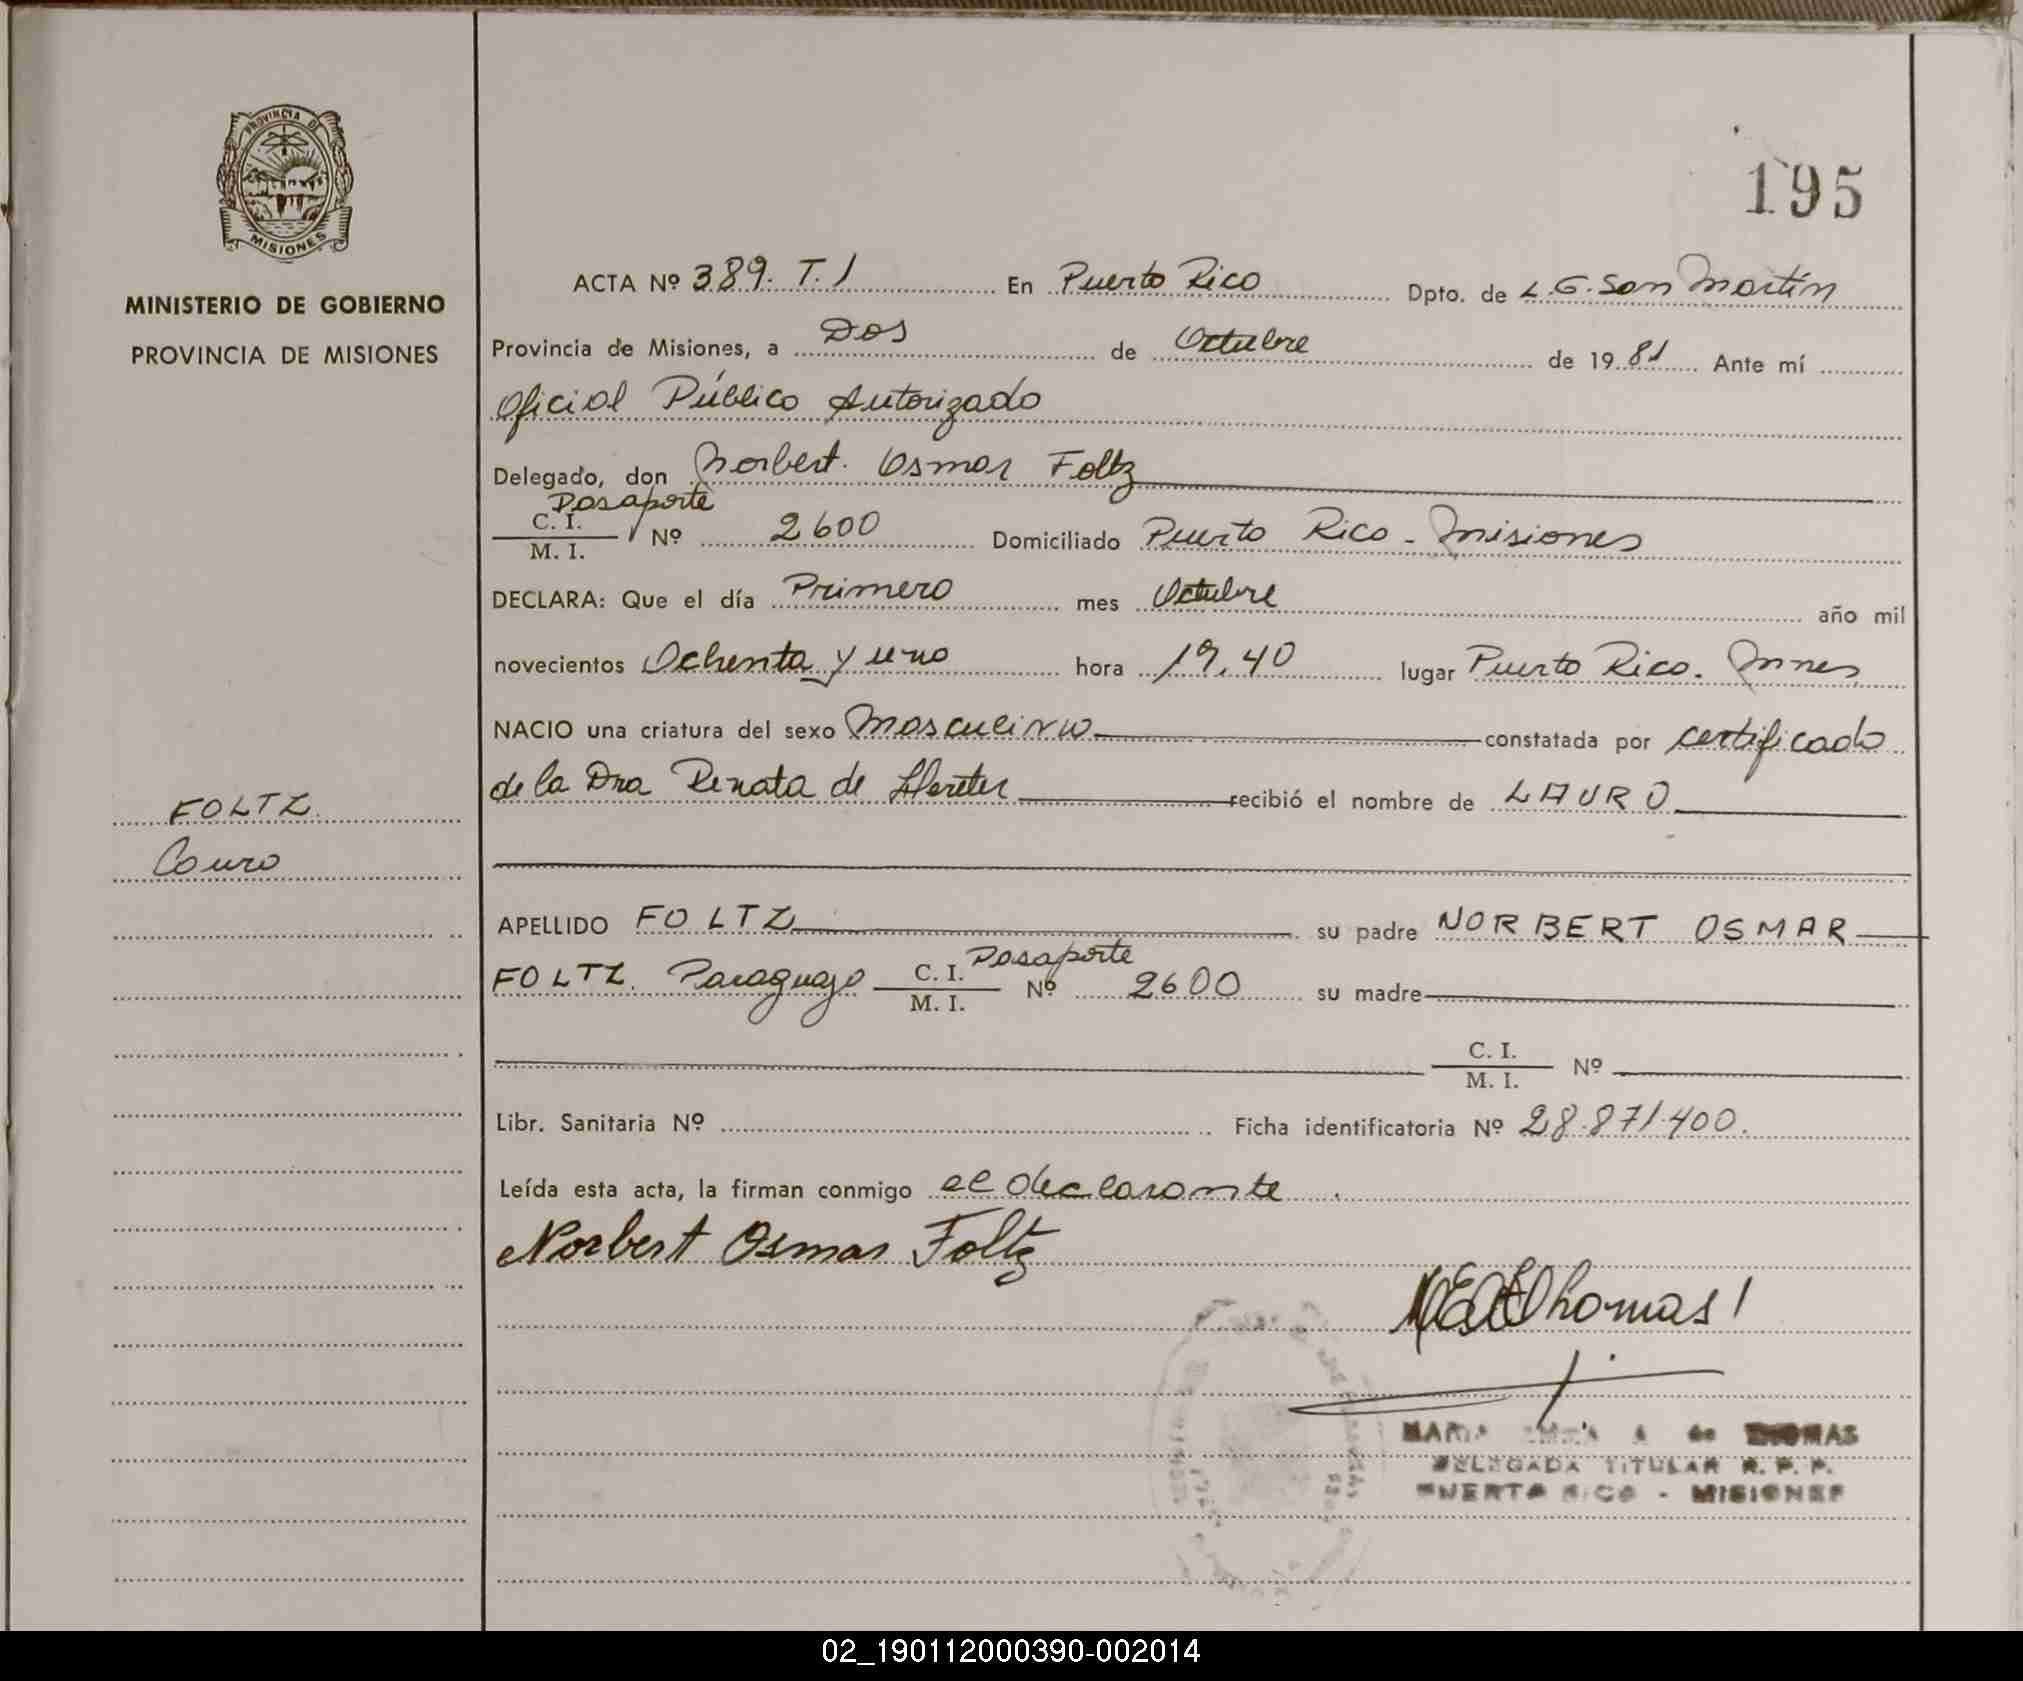 PROVINCIA DE
MISIONES
MINISTERIO DE GOBIERNO
PROVINCIA DE MISIONES
195
ACTA Nº 389. T. I En Puerto Rico Dpto. de L. G. San Martín
Provincia de Misiones, a Dos de Octubre de 19 81 Ante mí
Oficial Público Autorizado
Delegado, don Norbert. Osmar Foltz
Pasaporte
C. I.
M. I. Nº 2600 Domiciliado Puerto Rico - Misiones
DECLARA: Que el día Primero mes Octubre año mil
novecientos Ochenta y uno hora 19,40 lugar Puerto Rico. Mnes
NACIO una criatura del sexo Masculino constatada por certificado
de la Dra Renata de recibió el nombre de LAURO
FOLTZ.
Lauro
APELLIDO FOLTZ su padre NORBERT OSMAR
FOLTZ. Paraguayo C. I. Pasaporte
M. I. Nº 2600 su madre
C. I.
M. I. Nº
Libr. Sanitaria Nº Ficha identificatoria Nº 28.871.400.
Leída esta acta, la firman conmigo el declarante.
Norbert Osmar Foltz
Thomas
MARIA A de THOMAS
DELEGADA TITULAR R. P. P.
PUERTO RICO - MISIONES
02_190112000390-002014